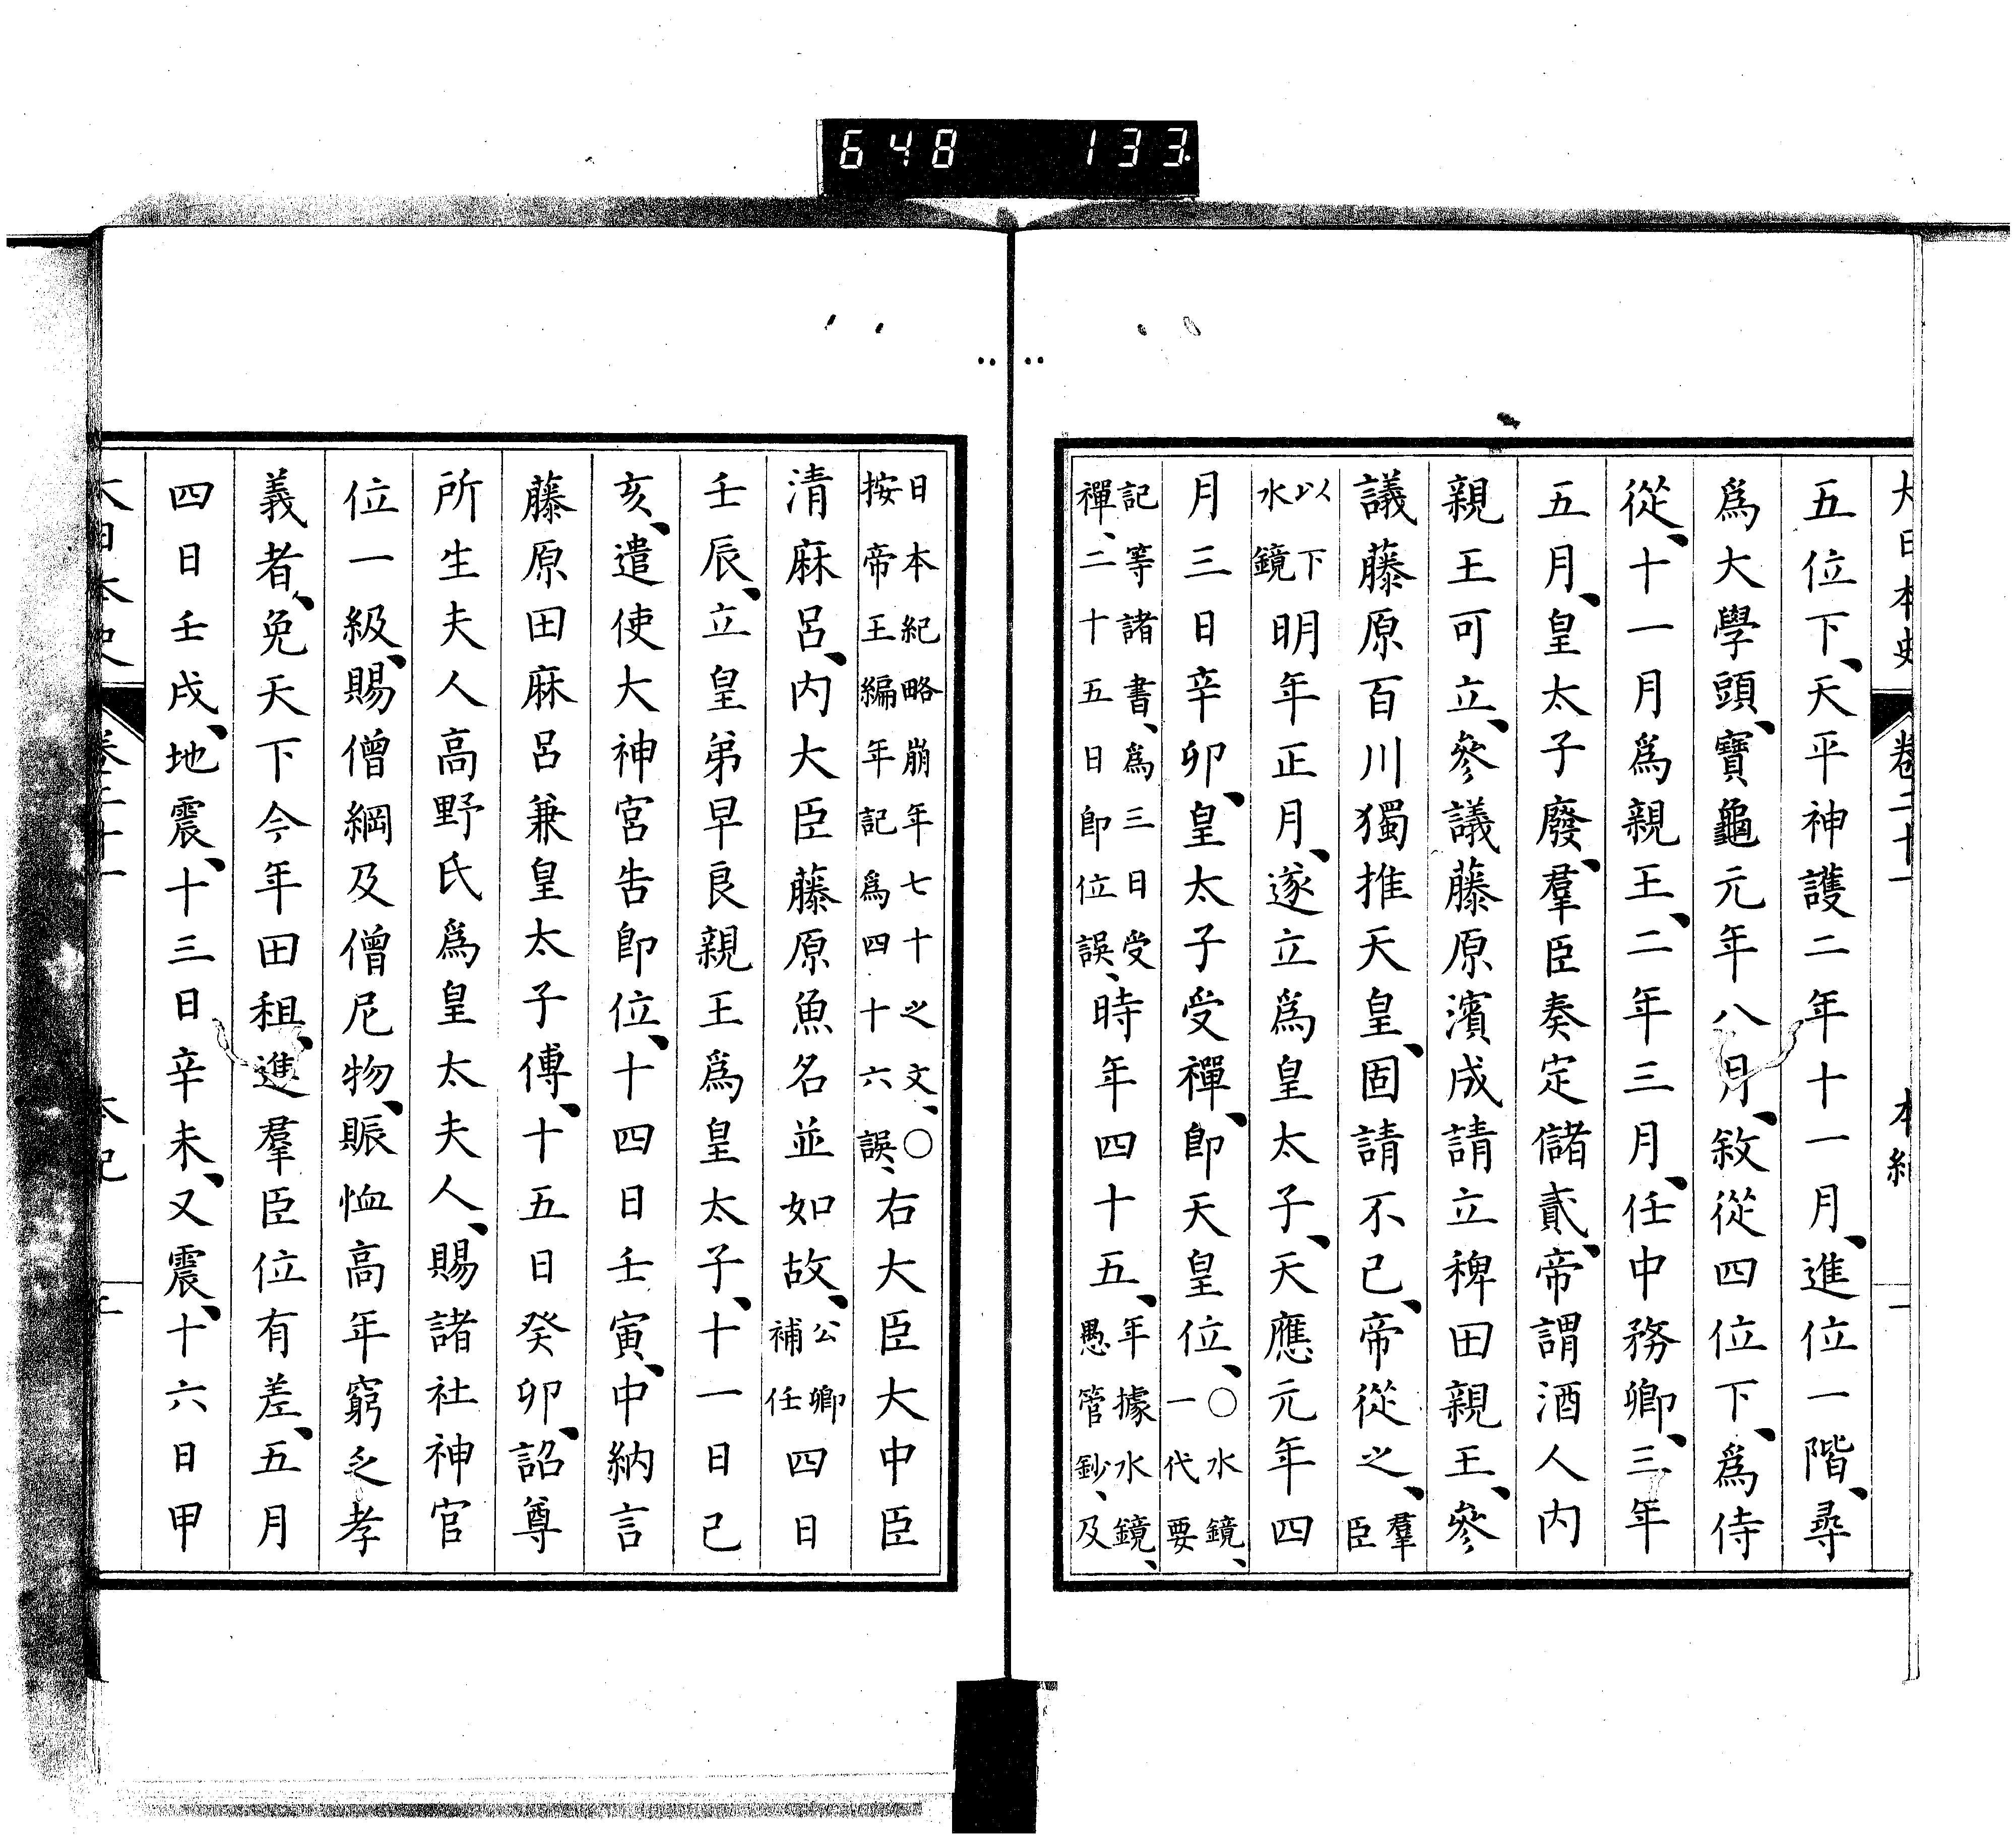 648 133
大日本史 卷二十一 本紀 一
五位下、天平神護二年十一月、進位一階、尋
爲大學頭、寶龜元年八月、敘從四位下、爲侍
從、十一月爲親王、二年三月、任中務卿、三年
五月、皇太子廢、羣臣奏定儲貳、帝謂酒人内
親王可立、參議藤原濱成請立稗田親王、參
議藤原百川獨推天皇、固請不已、帝從之、羣臣
以下水鏡明年正月、遂立爲皇太子、天應元年四
月三日辛卯、皇太子受禪、即天皇位、○水鏡、一代要
記等諸書、爲三日受禪、二十五日即位誤、時年四十五、年據水鏡、愚管鈔、及
日本紀略崩年七十之文、○按帝王編年記爲四十六誤、右大臣大中臣
清麻呂、内大臣藤原魚名並如故、公卿補任四日
壬辰、立皇弟早良親王爲皇太子、十一日己
亥、遣使大神宮告即位、十四日壬寅、中納言
藤原田麻呂兼皇太子傅、十五日癸卯、詔尊
所生夫人高野氏爲皇太夫人、賜諸社神官
位一級、賜僧綱及僧尼物、賑恤高年窮乏孝
義者、免天下今年田租、進羣臣位有差、五月
四日壬戌、地震、十三日辛未、又震、十六日甲
大日本史 卷二十一 本紀